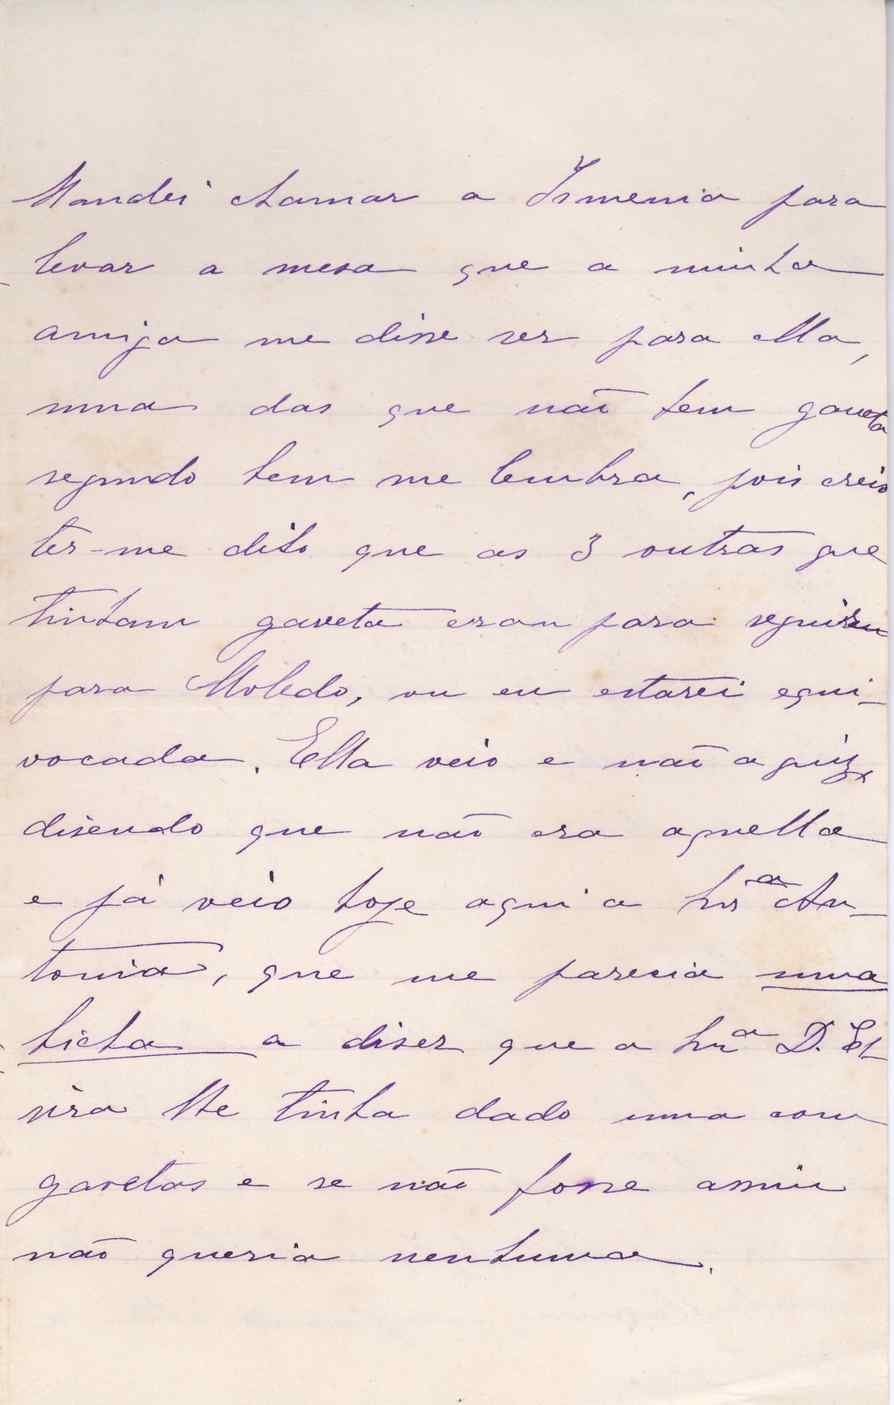 Mandei chamar a Ismenia para
levar a mesa que a minha
amiga me disse ser para ella,
uma das que não tem gaveta
segundo bem me lembra, pois creio
ter-me dito que as 3 outras que
tinham gaveta eram para seguirem
para Moledo, ou eu estarei equi-
vocada. Ella veio e não a quiz,
disendo que não era aquella
e já veio hoje aqui a Snrª An-
tonia, que me parecia uma
bicha a diser que a Snrª D. El-
vira lhe tinha dado uma com
gavetas e se não fosse assim
não queria nenhuma.